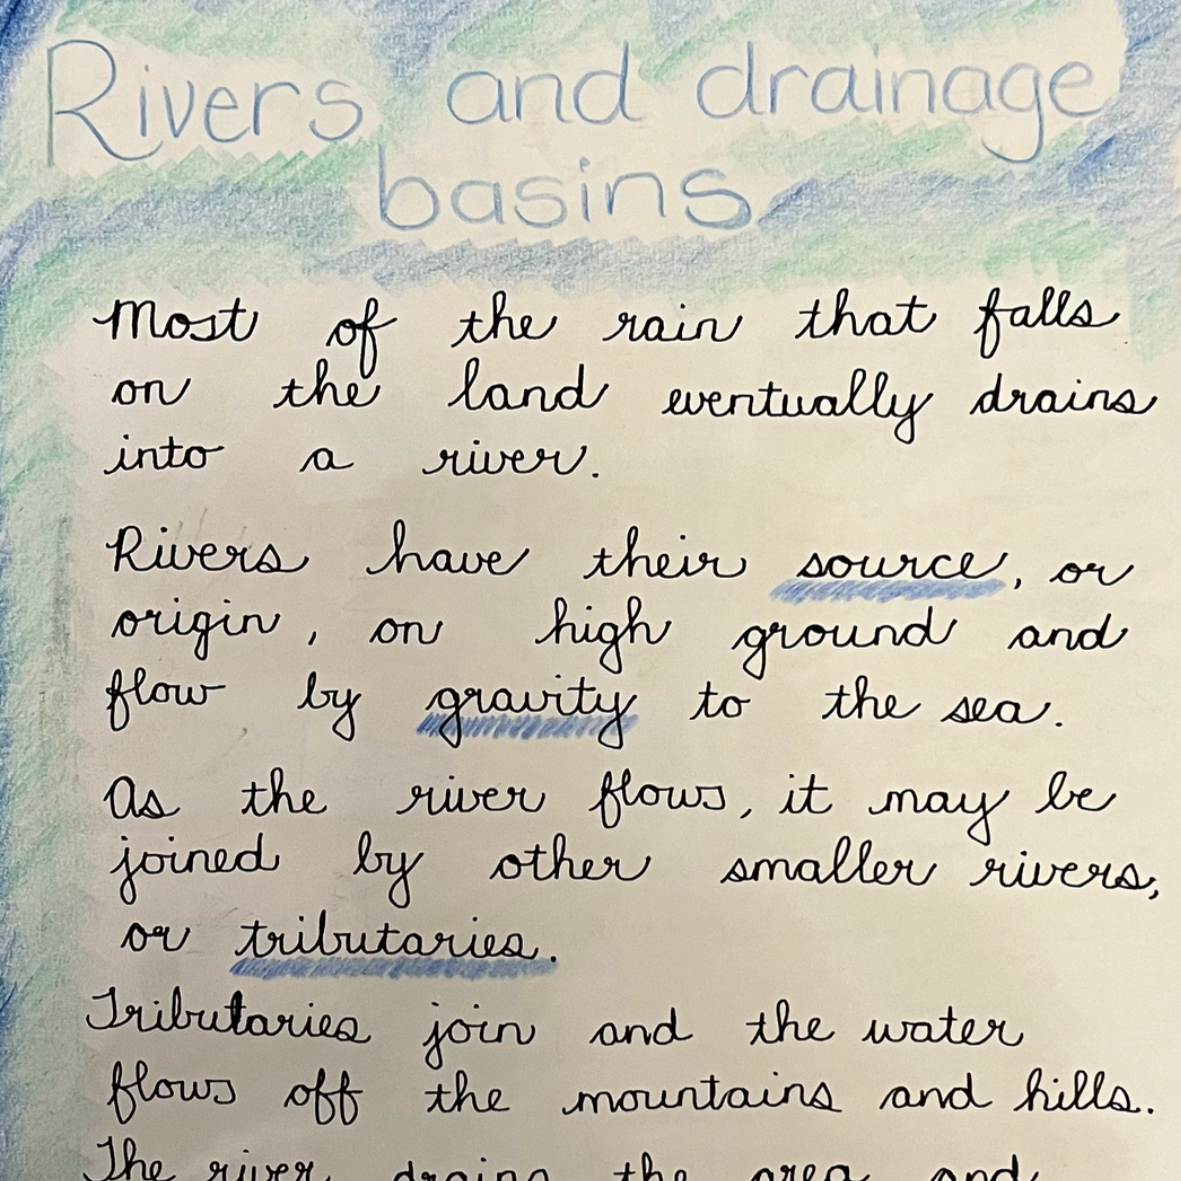 Rivers and drainage
basins
Most of the rain that falls
on the land eventually drains
into a river.
Rivers have their source, or
origin, on high ground and
flow by gravity to the sea.
As the river flows, it may be
joined by other smaller rivers,
or tributaries.
Tributaries join and the water
flows off the mountains and hills.
The river drains the area and